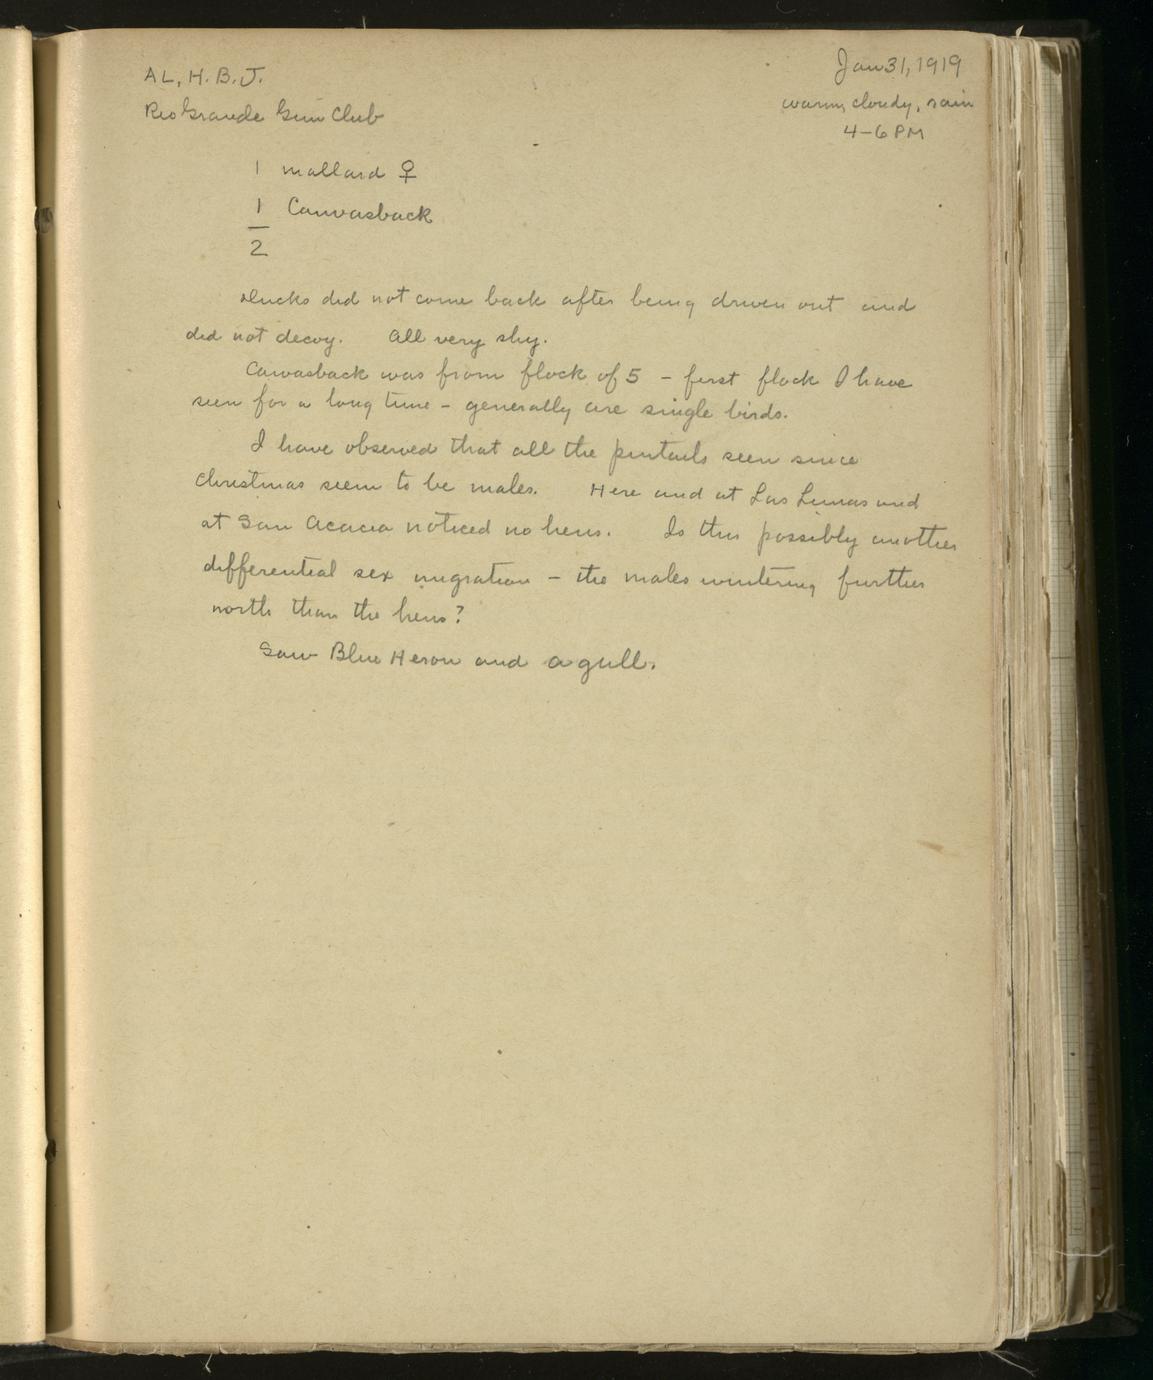 AL, H.B.J.
Rio Grande Gun Club
Jan 31, 1919
warm, cloudy, rain
4-6 PM
1 mallard ♀
1 Canvasback
2
Ducks did not come back after being driven out and
did not decoy. All very shy.
Canvasback was from flock of 5 - first flock I have
seen for a long time - generally are single birds.
I have observed that all the pintails seen since
Christmas seem to be males. Here and at Los Lunas and
at San Acacia noticed no hens. Is this possibly another
differential sex migration - the males wintering further
north than the hens?
Saw Blue Heron and a gull.